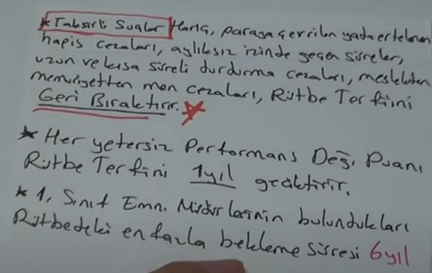 * Taksirli Suçlar Hariç, paraya çevrilen yada ertelenen
hapis cezaları, aylıksız izinde geçen süreler,
uzun ve kısa süreli durdurma cezaları, meslekten
memuriyetten men cezaları, Rütbe Terfiini
Geri Bıraktırır.
* Her yetersiz Performans Değ. Puanı
Rütbe Terfini 1 yıl geciktirir.
* 1. Sınıf Emn. Müdürlerinin bulundukları
Rütbedeki en fazla bekleme süresi 6 yıl